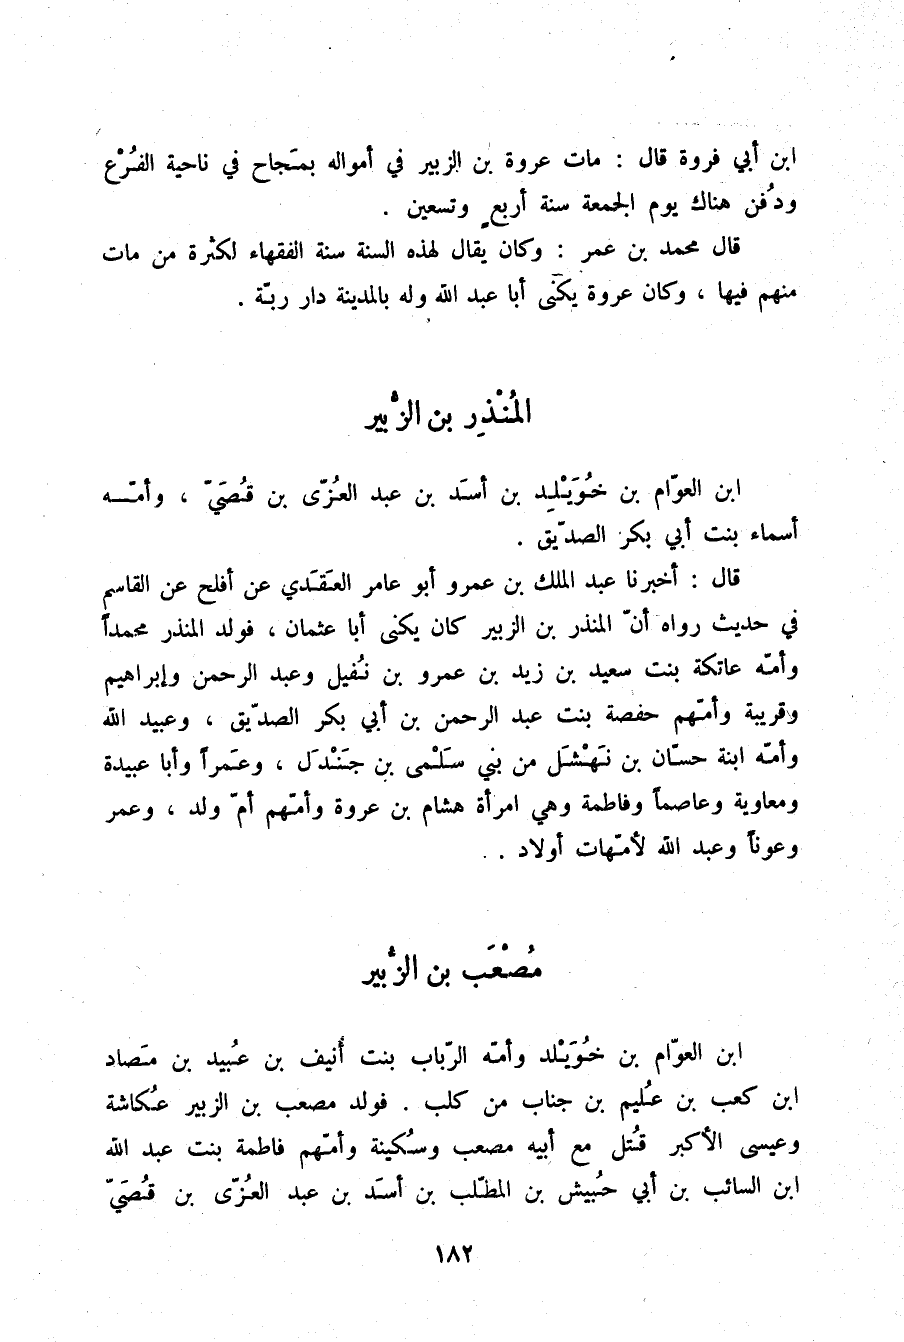 ابن أبي فروة قال : مات عروة بن الزبير في أمواله بمَجاح في ناحية الفُرْع
ودُفن هناك يوم الجمعة سنة أربعٍ وتسعين .
قال محمد بن عمر : وكان يقال لهذه السنة سنة الفقهاء لكثرة من مات
منهم فيها ، وكان عروة يكنى أبا عبد الله وله بالمدينة دار ربّة .
المُنْذِر بن الزُّبير
ابن العوّام بن خُوَيْلِد بن أسَد بن عبد العُزّى بن قُصَيّ ، وأمّه
أسماء بنت أبي بكر الصدّيق .
قال : أخبرنا عبد الملك بن عمرو أبو عامر العَقَدي عن أفلح عن القاسم
في حديث رواه أنّ المنذر بن الزبير كان يكنى أبا عثمان ، فولد المنذر محمداً
وأمّه عاتكة بنت سعيد بن زيد بن عمرو بن نُفيل وعبد الرحمن وإبراهيم
وقريبة وأمّهم حفصة بنت عبد الرحمن بن أبي بكر الصدّيق ، وعبيد الله
وأمّه ابنة حسّان بن نَهْشَل من بني سَلْمى بن جَنْدَل ، وعَمراً وأبا عبيدة
ومعاوية وعاصماً وفاطمة وهي امرأة هشام بن عروة وأمّهم أمّ ولد ، وعمر
وعوناً وعبد الله لأمّهات أولاد .
مُصْعَب بن الزُّبير
ابن العوّام بن خُوَيْلد وأمّه الرّباب بنت أُنيف بن عُبيد بن مَصاد
ابن كعب بن عُليم بن جناب من كلب . فولد مصعب بن الزبير عُكاشة
وعيسى الأكبر قُتل مع أبيه مصعب وسُكينة وأمّهم فاطمة بنت عبد الله
ابن السائب بن أبي حُبيش بن المطّلب بن أسَد بن عبد العُزّى بن قُصَيّ
١٨٢